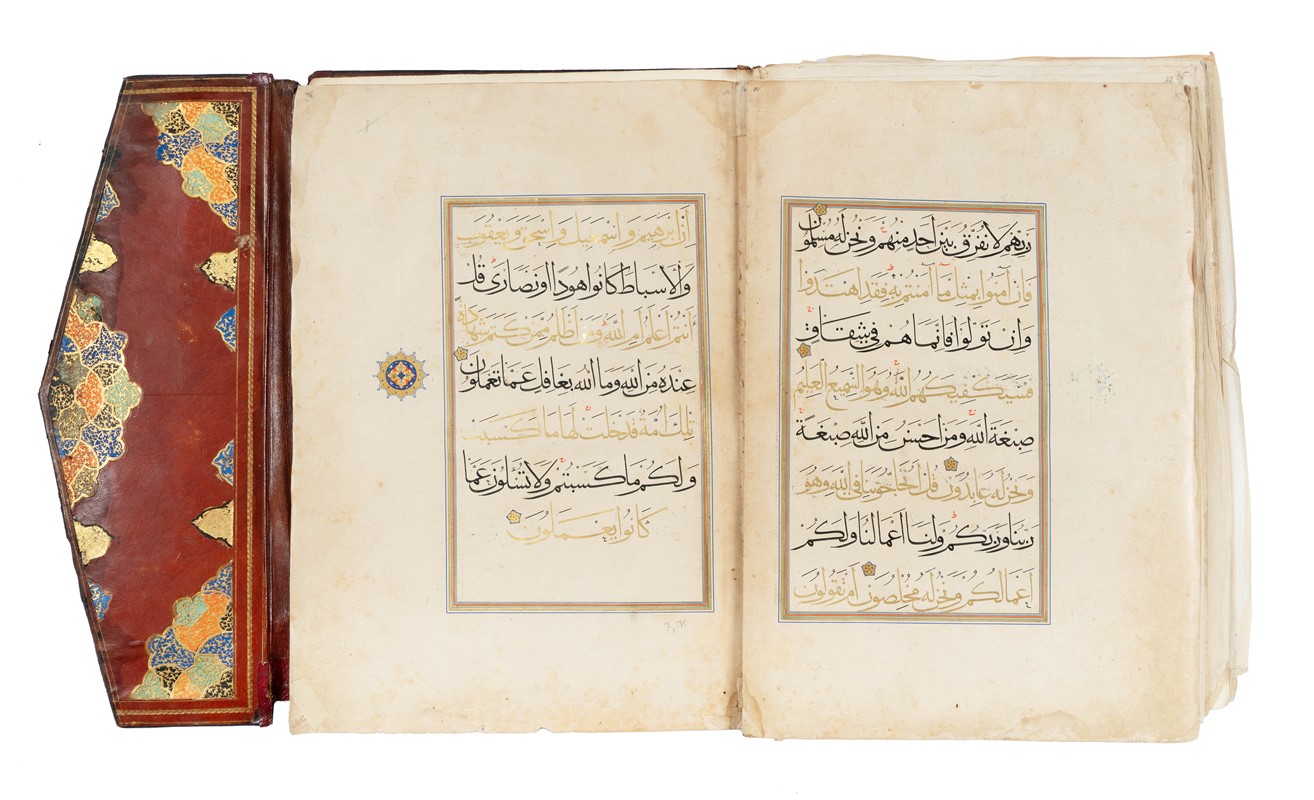 ربهم لا نفرق بين أحد منهم ونحن له مسلمون
فإن آمنوا بمثل ما آمنتم به فقد اهتدوا
وإن تولوا فإنما هم في شقاق
فسيكفيكهم الله وهو السميع العليم
صبغة الله ومن أحسن من الله صبغة
ونحن له عابدون قل أتحاجوننا في الله وهو
ربنا وربكم ولنا أعمالنا ولكم
أعمالكم ونحن له مخلصون أم تقولون
إن إبرهيم وإسمعيل وإسحق ويعقوب
والأسباط كانوا هودا أو نصارى قل
أأنتم أعلم أم الله ومن أظلم ممن كتم شهادة
عنده من الله وما الله بغافل عما تعملون
تلك أمة قد خلت لها ما كسبت
ولكم ما كسبتم ولا تسئلون عما
كانوا يعملون